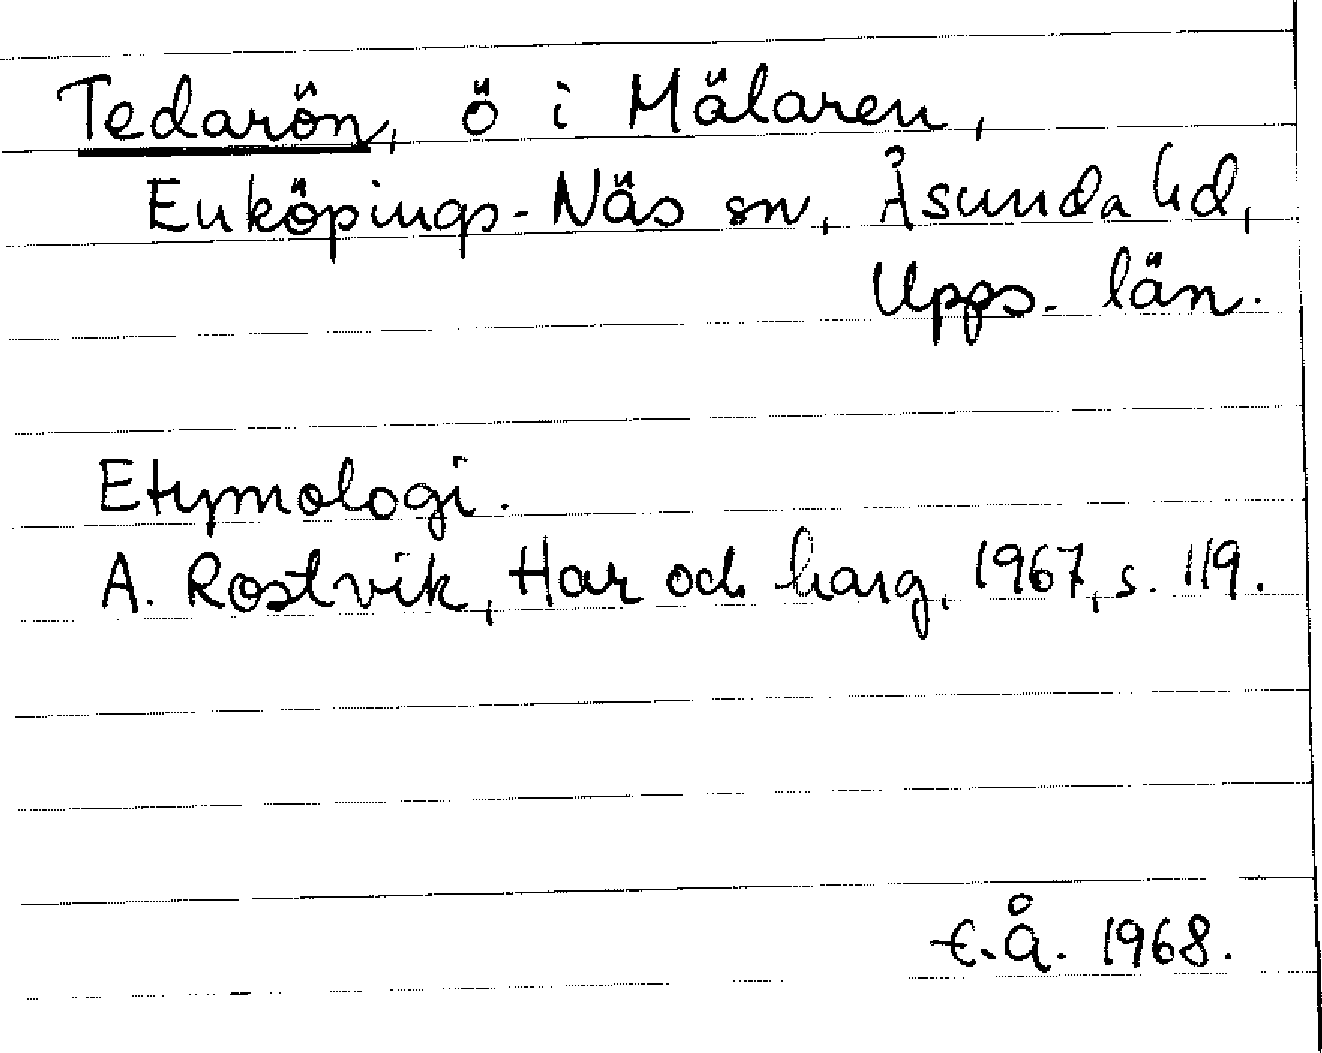 Tedarön, ö i Mälaren,
Enköpings-Näs sn, Åsunda hd,
Upps. län.
Etymologi.
A. Rostvik, Har och harg, 1967, s. 119.
t.Å. 1968.